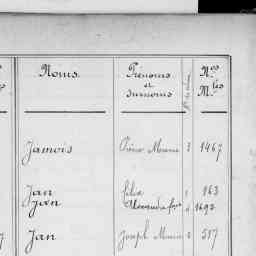 Noms. Prénoms et surnoms Nos Mles
Jamois 3 1467
Jan Félix 1 163
Jan Alexandre 4 1692
Jan Joseph Marie 2 517